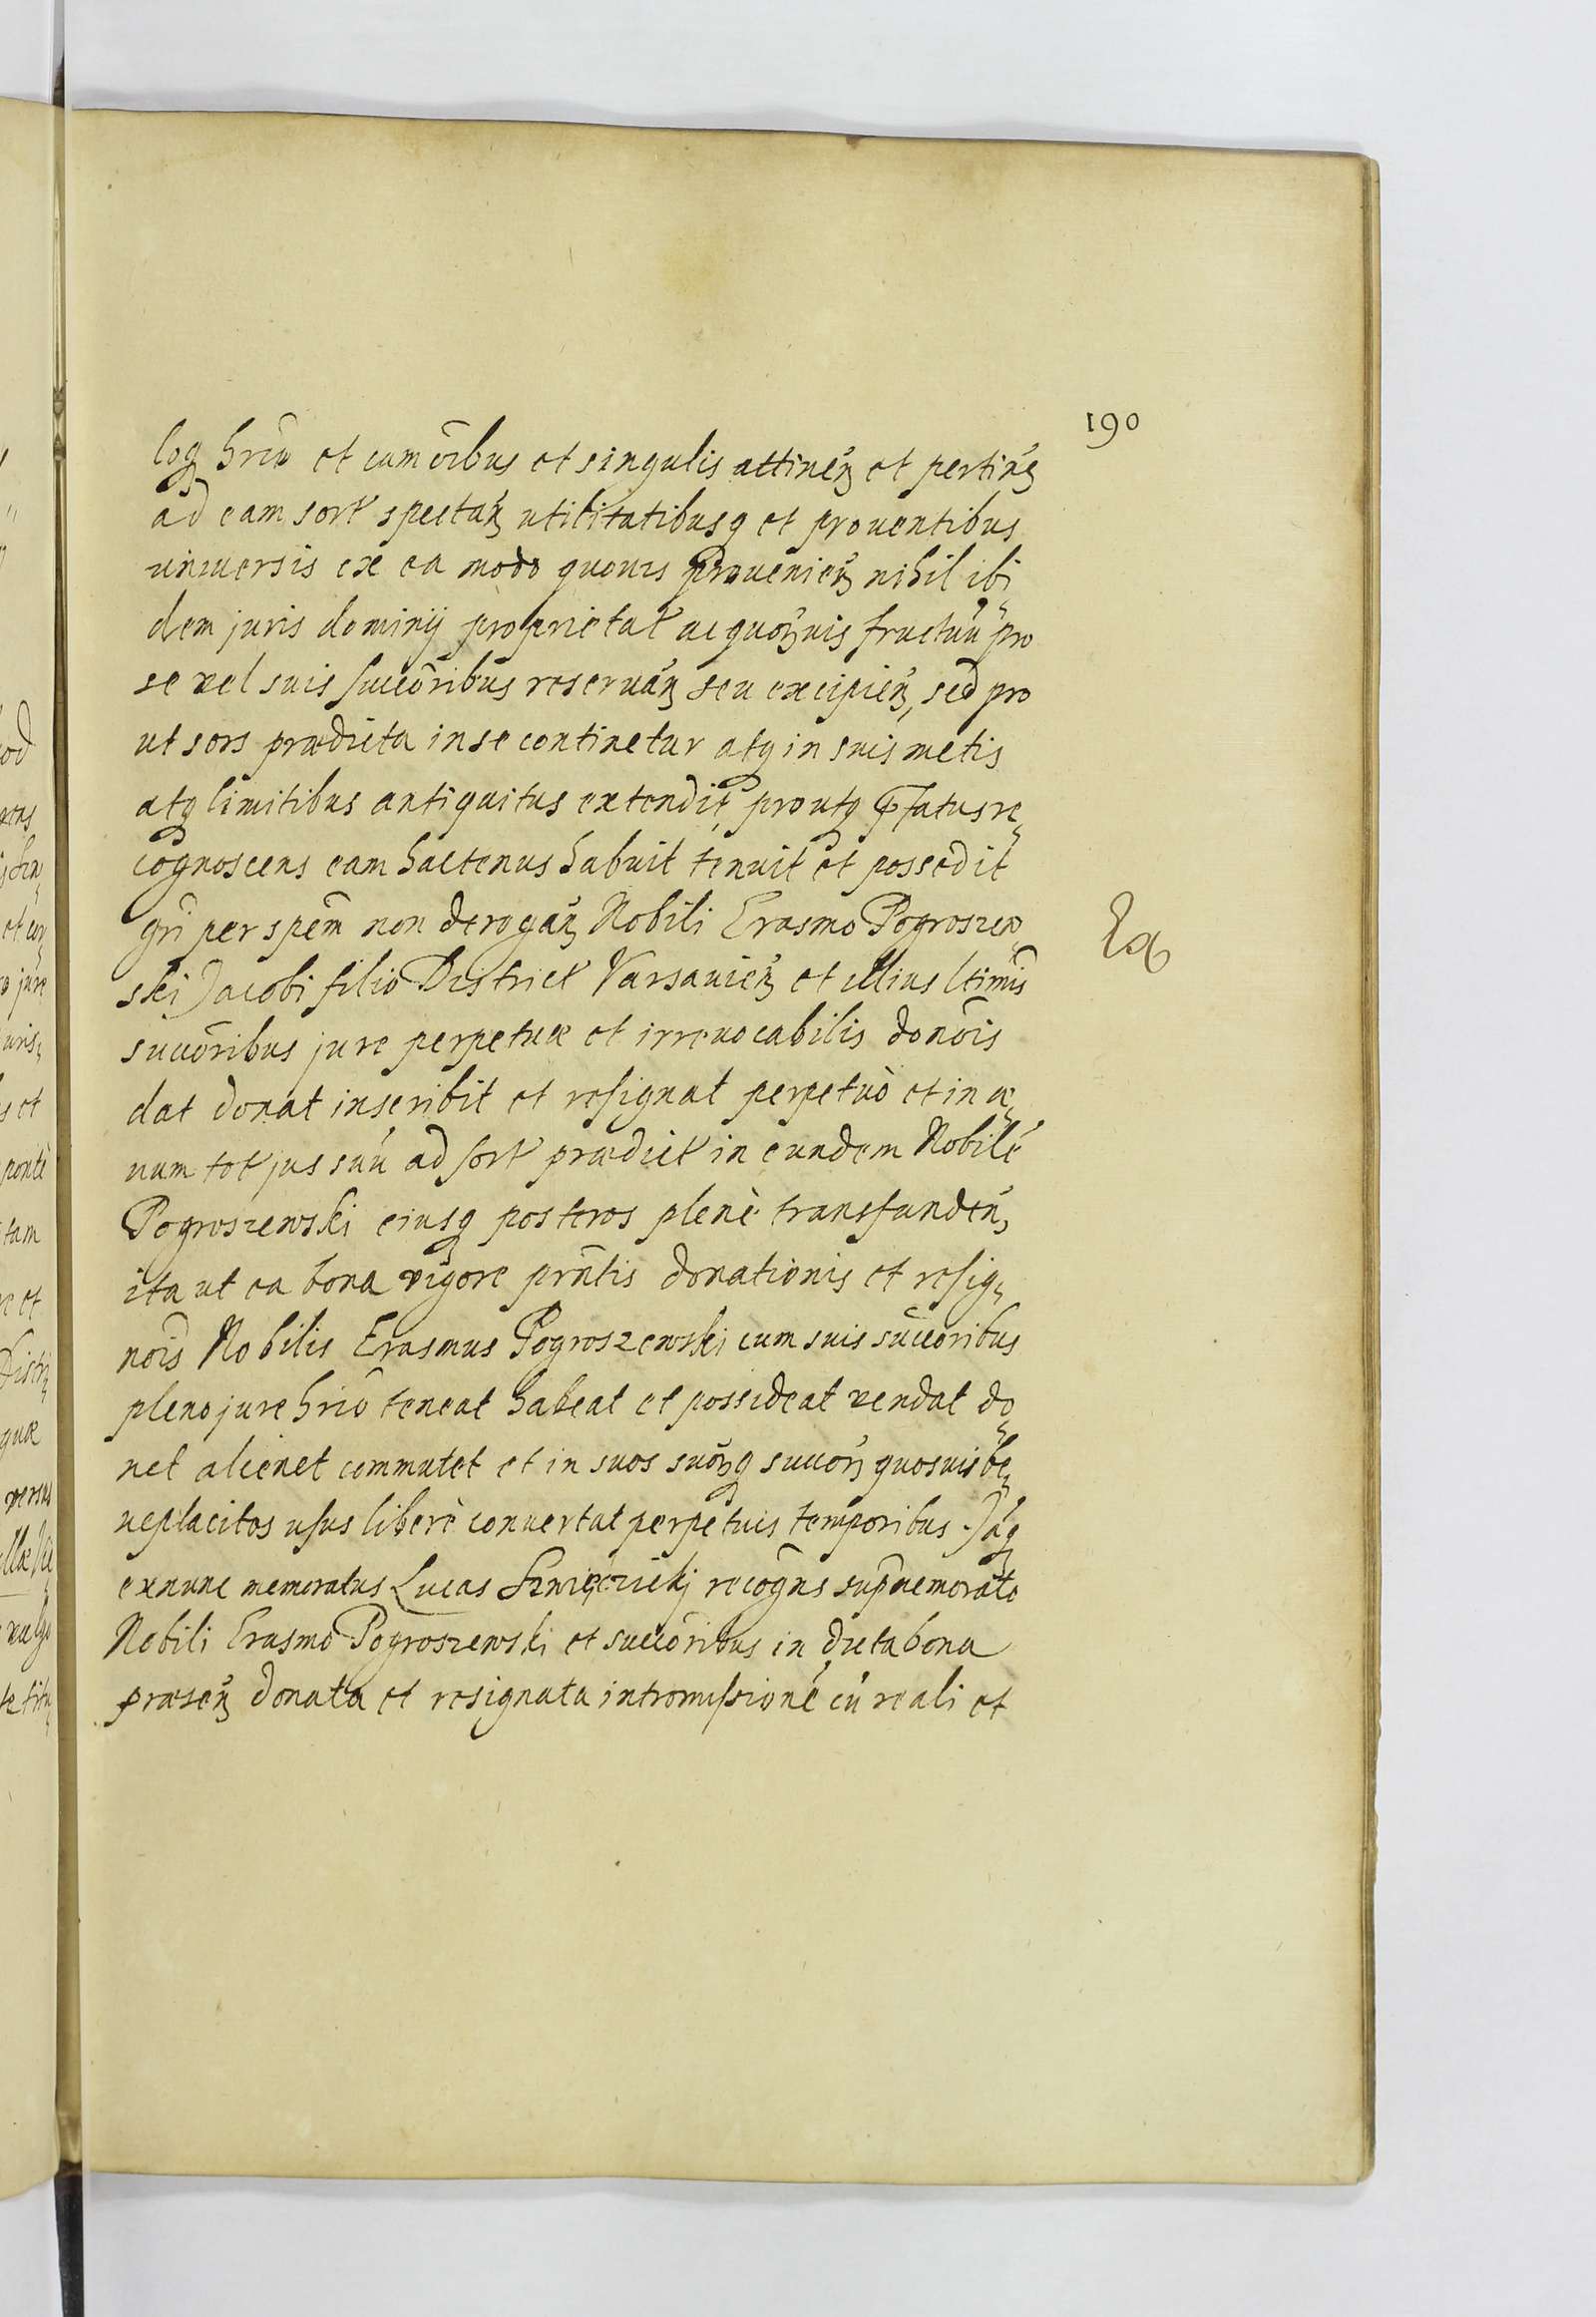 190
loq̃ hrio et cum oĩbus et singulis attineñ et pertineñ
ad eam sort spectañ utilitatibusq et prouentibus
uniuersis ex ea modo quouis prouenieñ nihil ibi„
dem juris dominij proprietat ac quorũuis fructuũ pro
se vel suis succõribus reseruañ seu excipieñ, sed pro
ut sors prædicta in se continetur atq in suis metis
atq limitibus antiquitus extendit, proutq pfatus re„
cognoscens eam hactenus habuit tenuit et possedit
gñi per spẽm non derogañ Nobili Erasmo Pogroszew„
ski Jacobi filio District Varsauieñ et illius ltimis
succõribus jure perpetuæ et irreuocabilis donõis
dat donat inscribit et resignat perpetuò et in æ„
uum tot jus suũ ad sort prædict in eundem Nobilẽ
Pogroszewski eiusq posteros plenè transfundeñ,
ita ut ea bona vigore prñtis donationis et resig„
nõis Nobilis Erasmus Pogroszewski cum suis succõribus
pleno jure hrio teneat habeat et possideat vendat do„
net alienet commutet et in suos suorq succor quosuis be„
neplacitos usus liberè conuertat perpetuis temporibus. Jáq
exnunc memoratus Lucas recogñs supmemorato
Nobili Erasmo Pogroszewski et succõribus in dicta bona
præseñ donata et resignata intromissionẽ cũ reali et